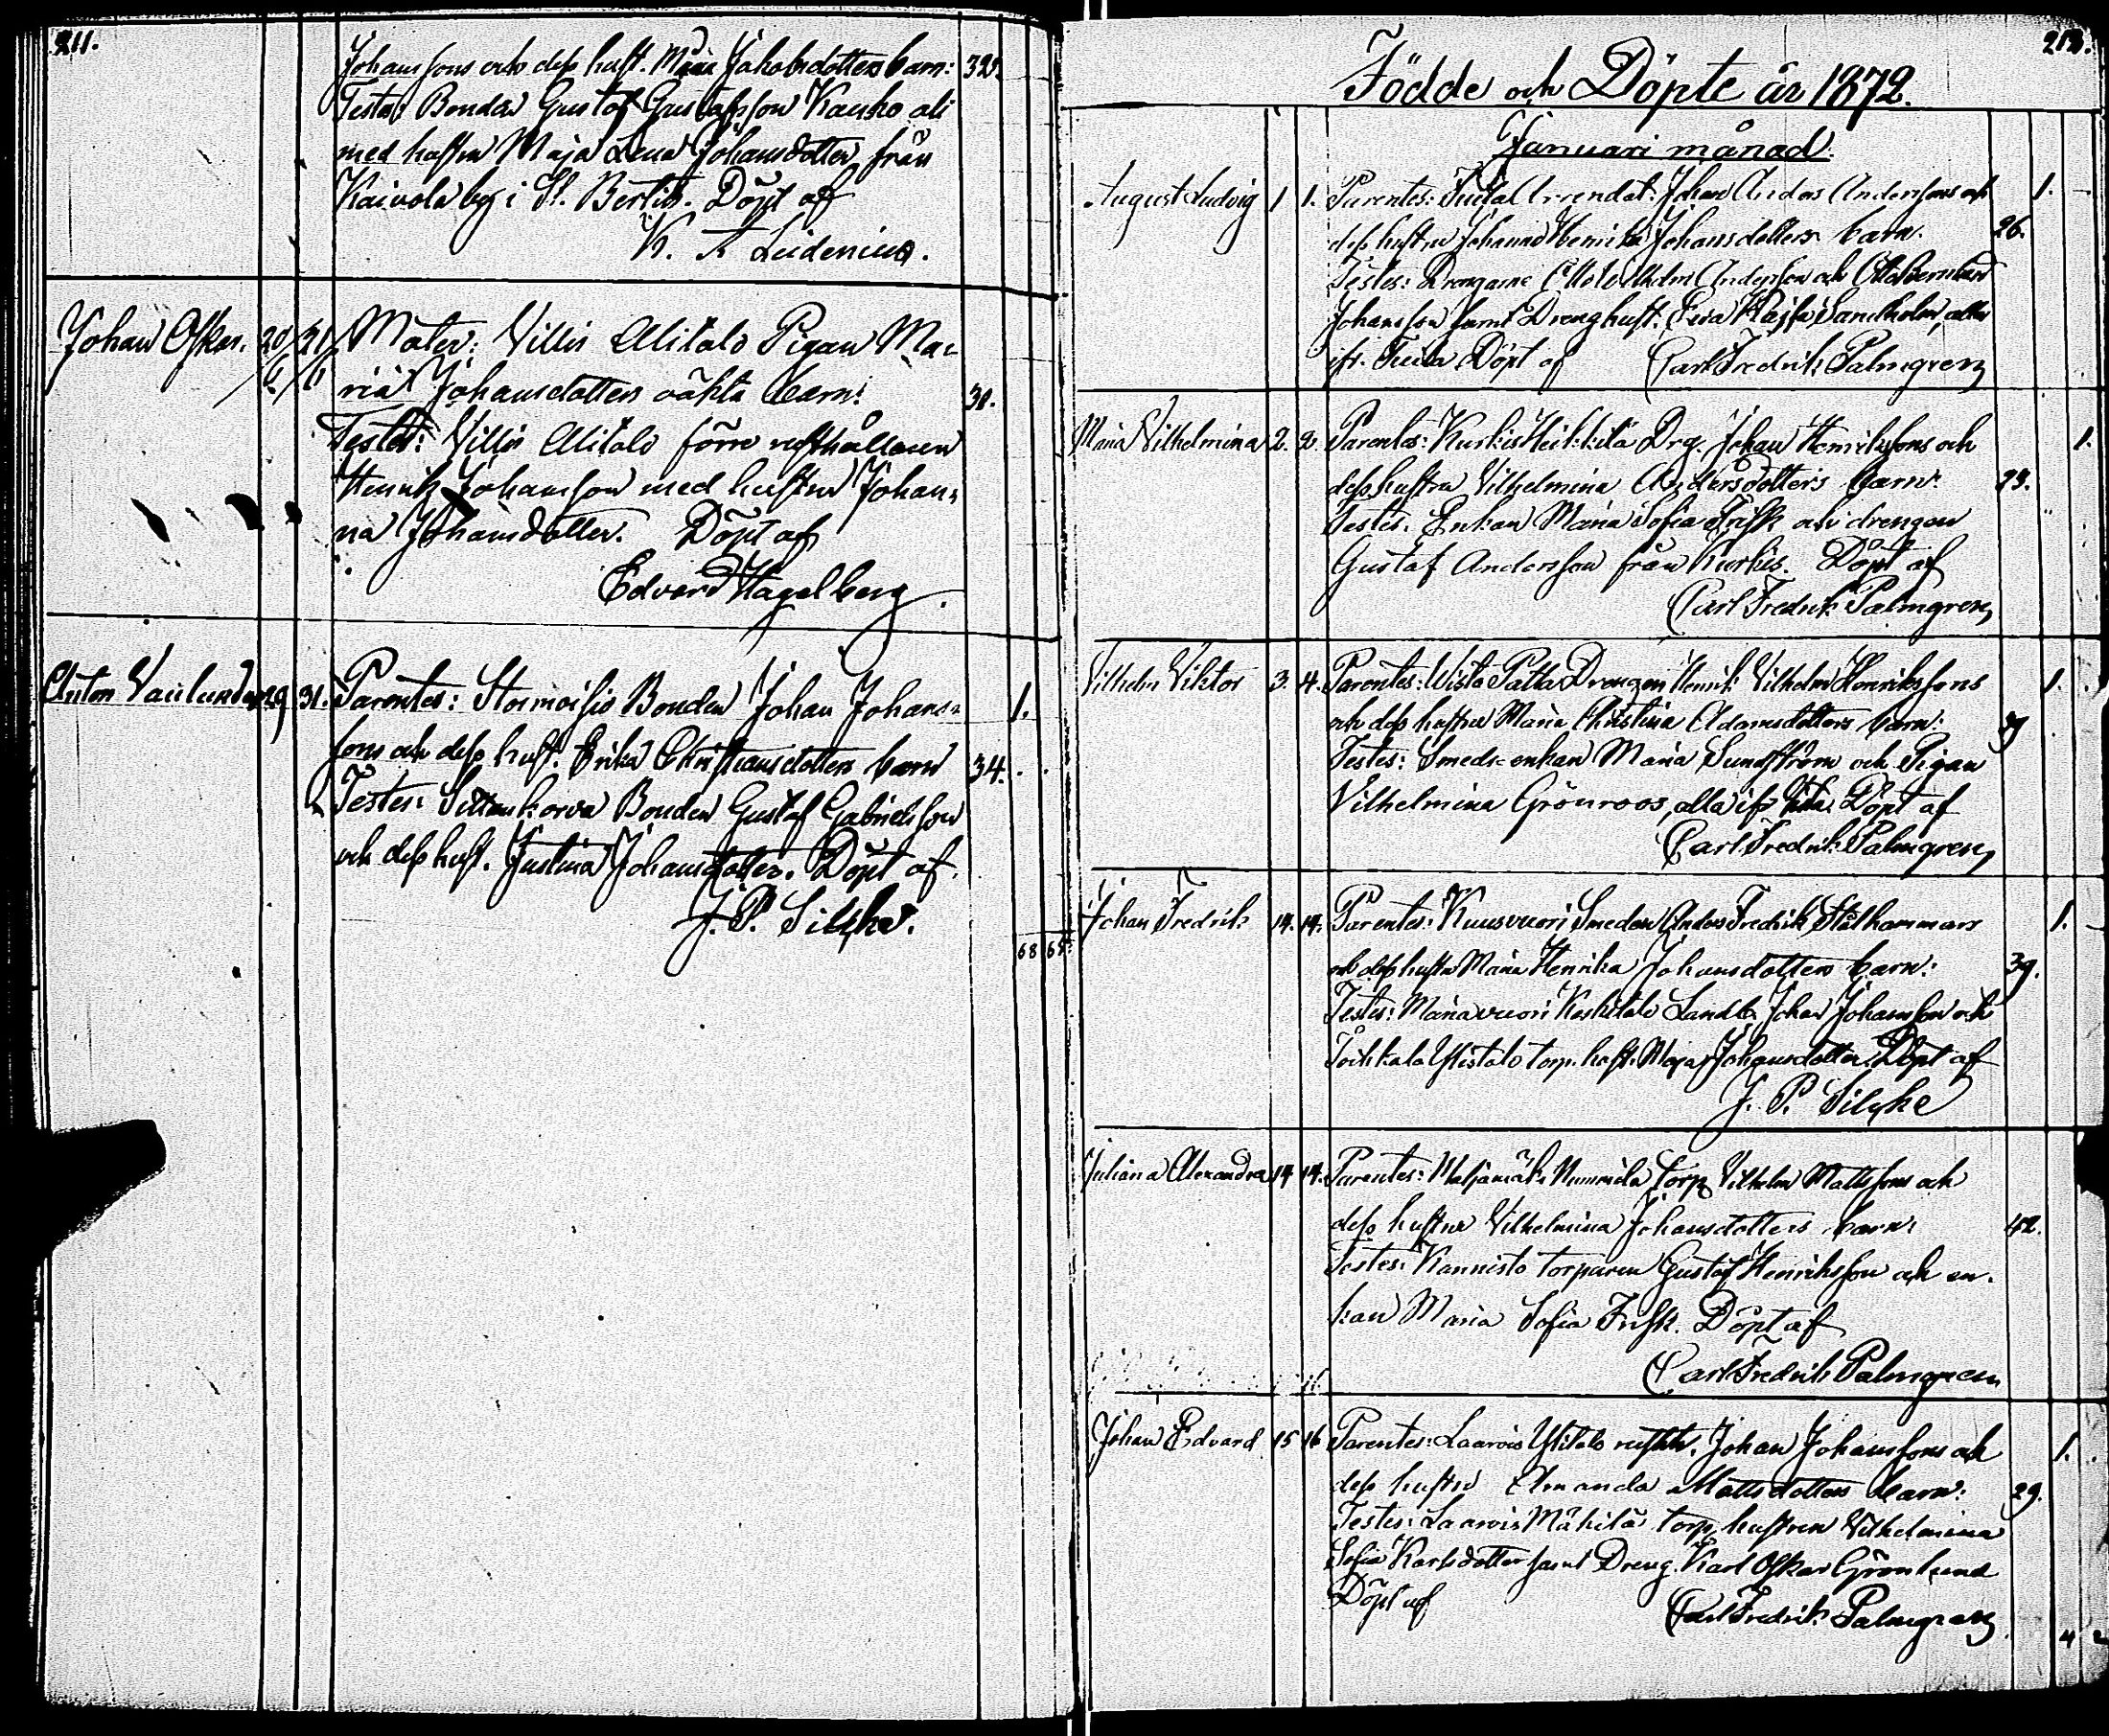 211.
Johanssons och dess hust. Maria Jakobsdotters barn: 32.
Testes: Bonden Gustaf Gustafsson Kausko
med hustru Maja Lena Johansdotter från
Kaivola by i St. Bertils. Döpt af
K. A Leidenius.
Johan Oskar. 20/6 21/6 Mater: Villis Alitalo Pigan Ma-
ria Johansdotters oäkta barn: 31.
Testes: Villis Alitalo förre rusthållaren
Henrik Johansson med hustru Johan-
na Johansdotter. Döpt af
Edvard Hagelberg.
Anton 29 31. Parentes: Stornoisio Bonden Johan Johans- 1.
sons och dess hust. Erika Christiansdotters barn 34.
Testes: Siltankorva Bonden Gustaf Gabrielsson
och dess hust. Justina Johansdotter. Döpt af
J. P. Silqhe.
68
213.
Födde och Döpte år 1872.
Januari månad.
August Ludvig 1 1. Parentes: Arrendat. Johan Anders Anderssons och 1.
dess hustru Johanna Henrika Johansdotters barn. 26.
Testes: Drengarne Otto Vilhelm Andersson och Otto Bernhard
Johansson samt Dreng hust. Eva Kajsa Sandholm, alla
ifr. Döpt af Carl Fredrik Palmgren
Maria Vilhelmina 2. 2. Parentes: Kurkis Heikkilä Drg. Johan Henrikssons och 1.
dess hustru Vilhelmina Andersdotters barn: 23.
Testes. Enkan Maria Sofia Frisk och drengen
Gustaf Andersson från Kurkis. Döpt af
Carl Fredrik Palmgren
Vilhelm Viktor 3. 4. Parentes: Wista Patta Drengen Henrik Vilhelm Henrikssons 1.
och dess hustru Maria Christina Adamsdotters barn: 39
Testes: Smeds-enkan Maria Sundström och Pigan
Vilhelmina Grönroos, alla ifr. Wista. Döpt af
Carl Fredrik Palmgren
Johan Fredrik 14. 14. Parentes: Kuusvuori Smeden Anders Fredrik Stålhammars 1.
och dess hustru Maria Henrika Johansdotters barn: 39.
Testes: Mariavuori Keskitalo Landb. Johan Johansson och
Ylistalo torp. hust. Maja Johansdotter. Döpt af
J. P. Silqhe
Juliana Alexandra 14 14. Parentes: Nummila torp. Vilhelm Mattssons och
dess hustru Vilhelmina Johansdotters barn: 42.
Testes: Kannisto torparen Gustaf Henriksson och en-
kan Maria Sofia Frisk. Döpt af
Carl Fredrik Palmgren
Johan Edvard 15 16 Parentes: Laarois Ylitalo rusth. Johan Johanssons och 1.
dess hustru Amanda Mattsdotters barn: 29.
Testes: Laarois Mäkilä torp. hustrun Vilhelmina
Sofia Karlsdotter samt Dreng. Karl Oskar Grönlund
Döpt af Carl Fredrik Palmgren
4 2